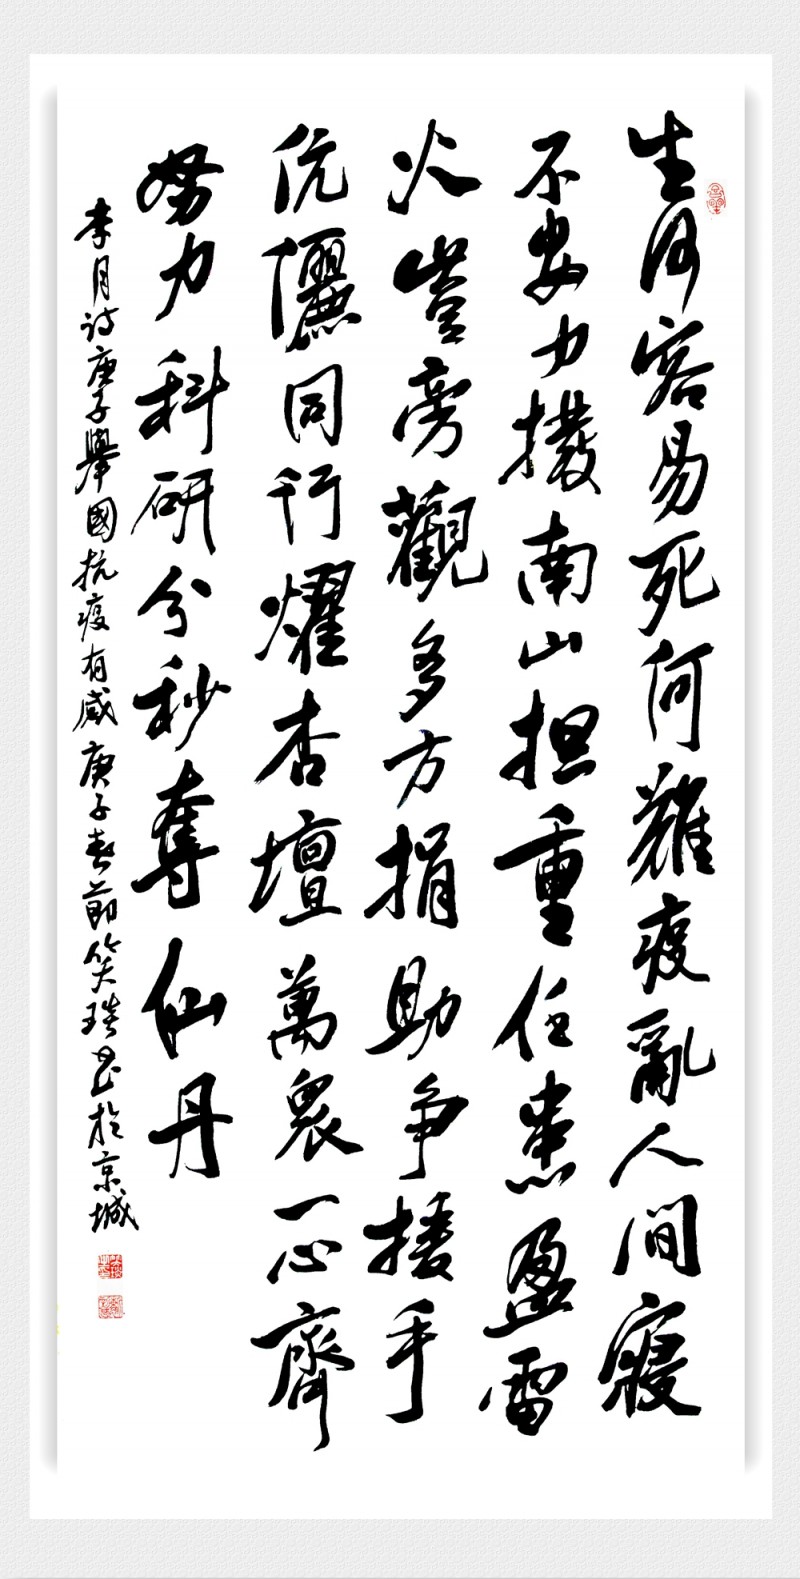 生何容易死何難疫亂人間寢
不安力撥南山担重任患盈雷
火豈旁觀多方捐助争援手
伉儷同行燿杏壇萬衆一心齊
努力科研分秒奪仙丹
李月诗庚子舉國抗疫有感庚子春節笑书於京城